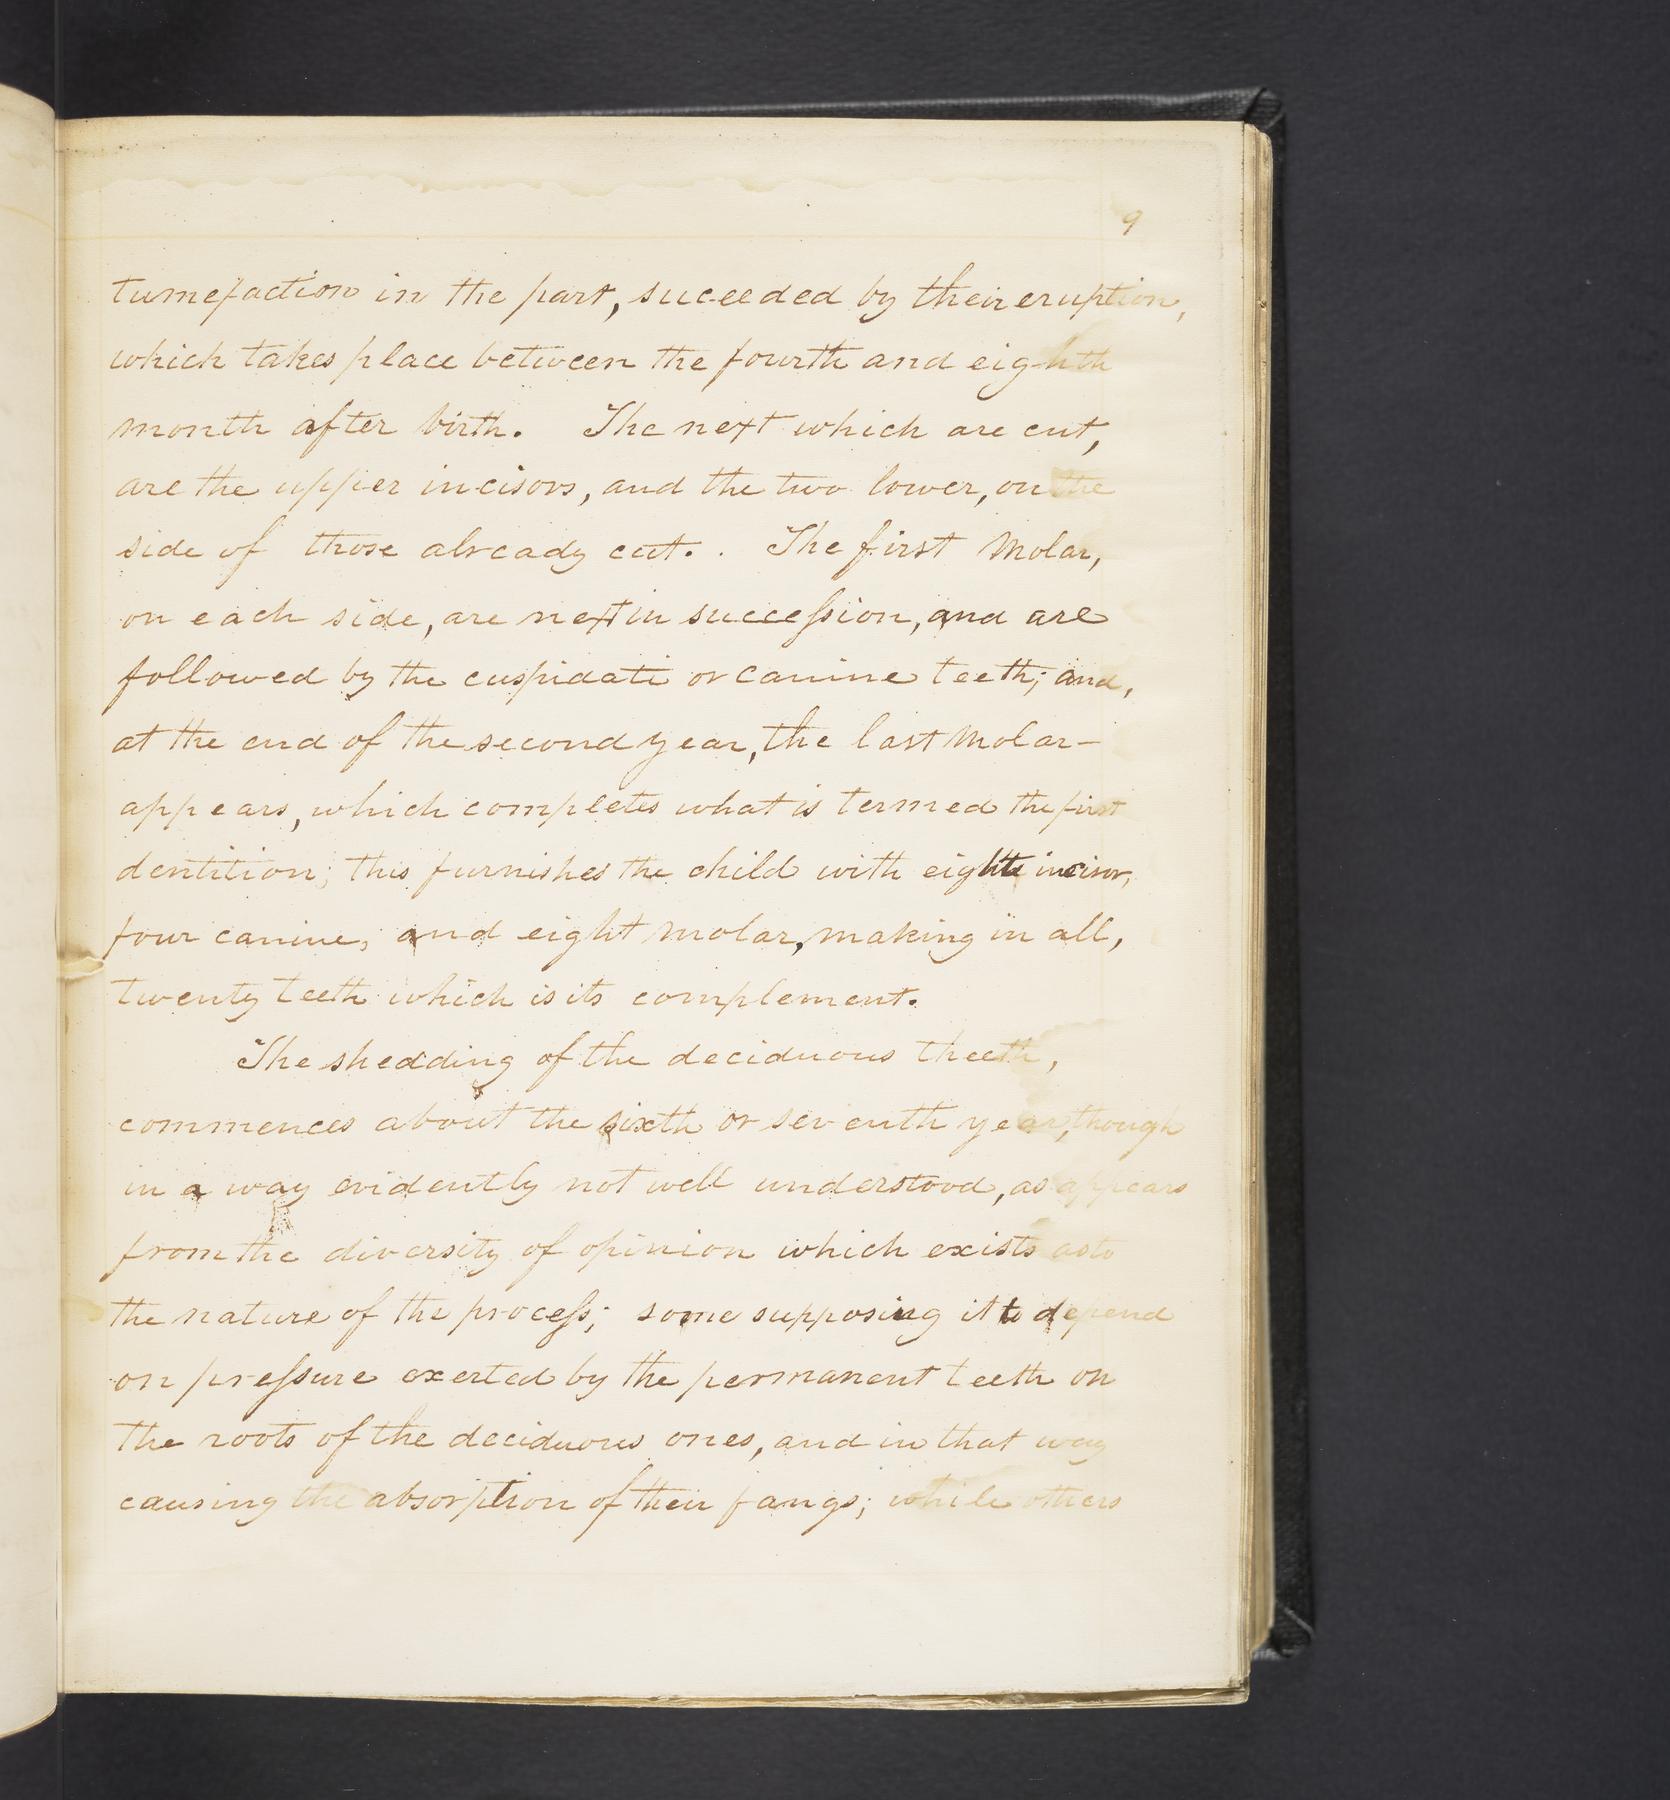 9
tumefaction in the part, succeeded by their eruption,
which takes place between the fourth and eighth
month after birth. The next which are cut,
are the upper incisors, and the two lower, on the
side of those already cut. . The first Molar,
on each side, are next in succeſsion, and are
followed by the cuspidati or canine teeth; and,
at the end of the second year, the last Molar-
appears, which completes what is termed the first
dentition; this furnishes the child with eight incisor,
four canine, and eight molar, making in all,
twenty teeth which is its complement.
The shedding of the deciduous theeth,
commences about the sixth or seventh year, though
in a way evidently not well understood, as appears
from the diversity of opinion which exists as to
the nature of the proceſs; some supposing it to depend
on preſsure exerted by the permanent teeth on
the roots of the deciduous ones, and in that way
causing the absorption of their fangs; while others